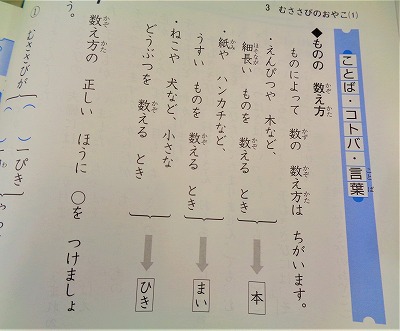 3 むささびのおやこ(1)
ことば・コトバ・言葉
◆ものの 数え方
ものによって 数の 数え方は ちがいます。
・えんぴつや 木など、
細長い ものを 数える とき
本
・紙や ハンカチなど、
うすい ものを 数える とき
まい
・ねこや 犬など、小さな
どうぶつを 数える とき
ひき
数え方の 正しい ほうに ○を つけましょ
う。
① むささびが
一ぴき